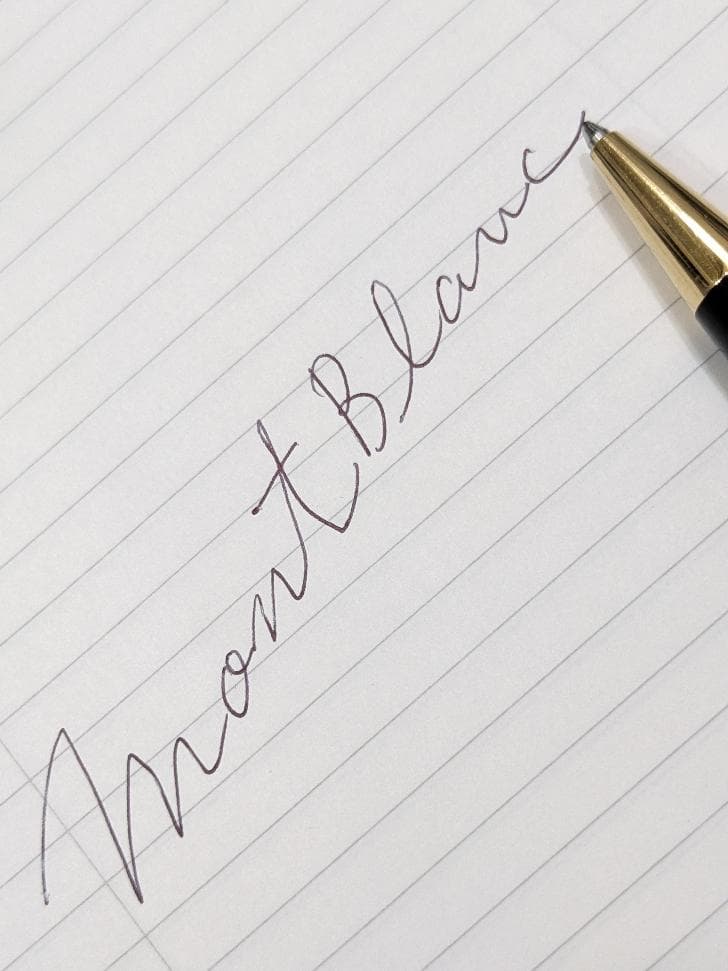 Mont Blanc